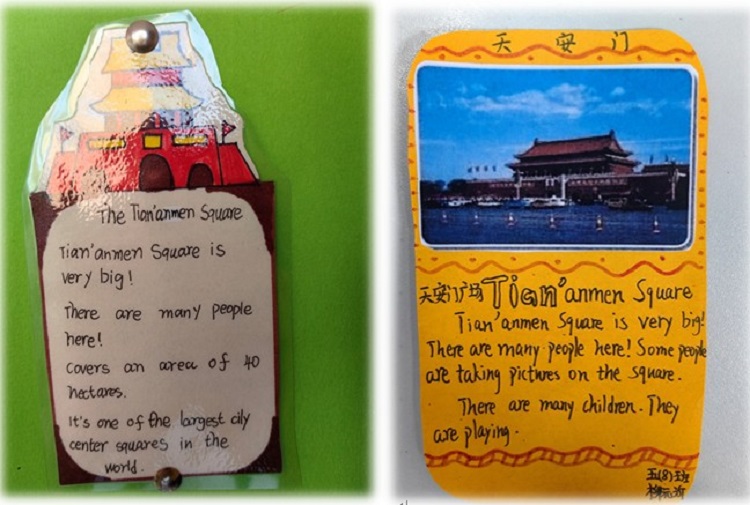 The Tian'anmen Square
Tian'anmen Square is
very big!
There are many people
here!
Covers an area of 40
hectares.
It's one of the largest city
center squares in the
world.
天安门
天安门广场 Tian'anmen Square
Tian'anmen Square is very big!
There are many people here! Some people
are taking pictures on the square.
There are many children. They
are playing.
五(8)班